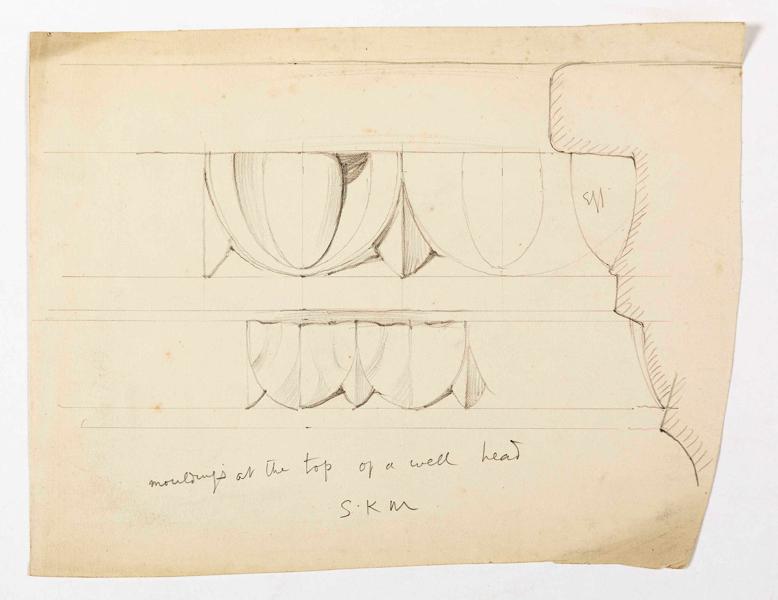 egg
mouldings at the top of a well head
S.K.M